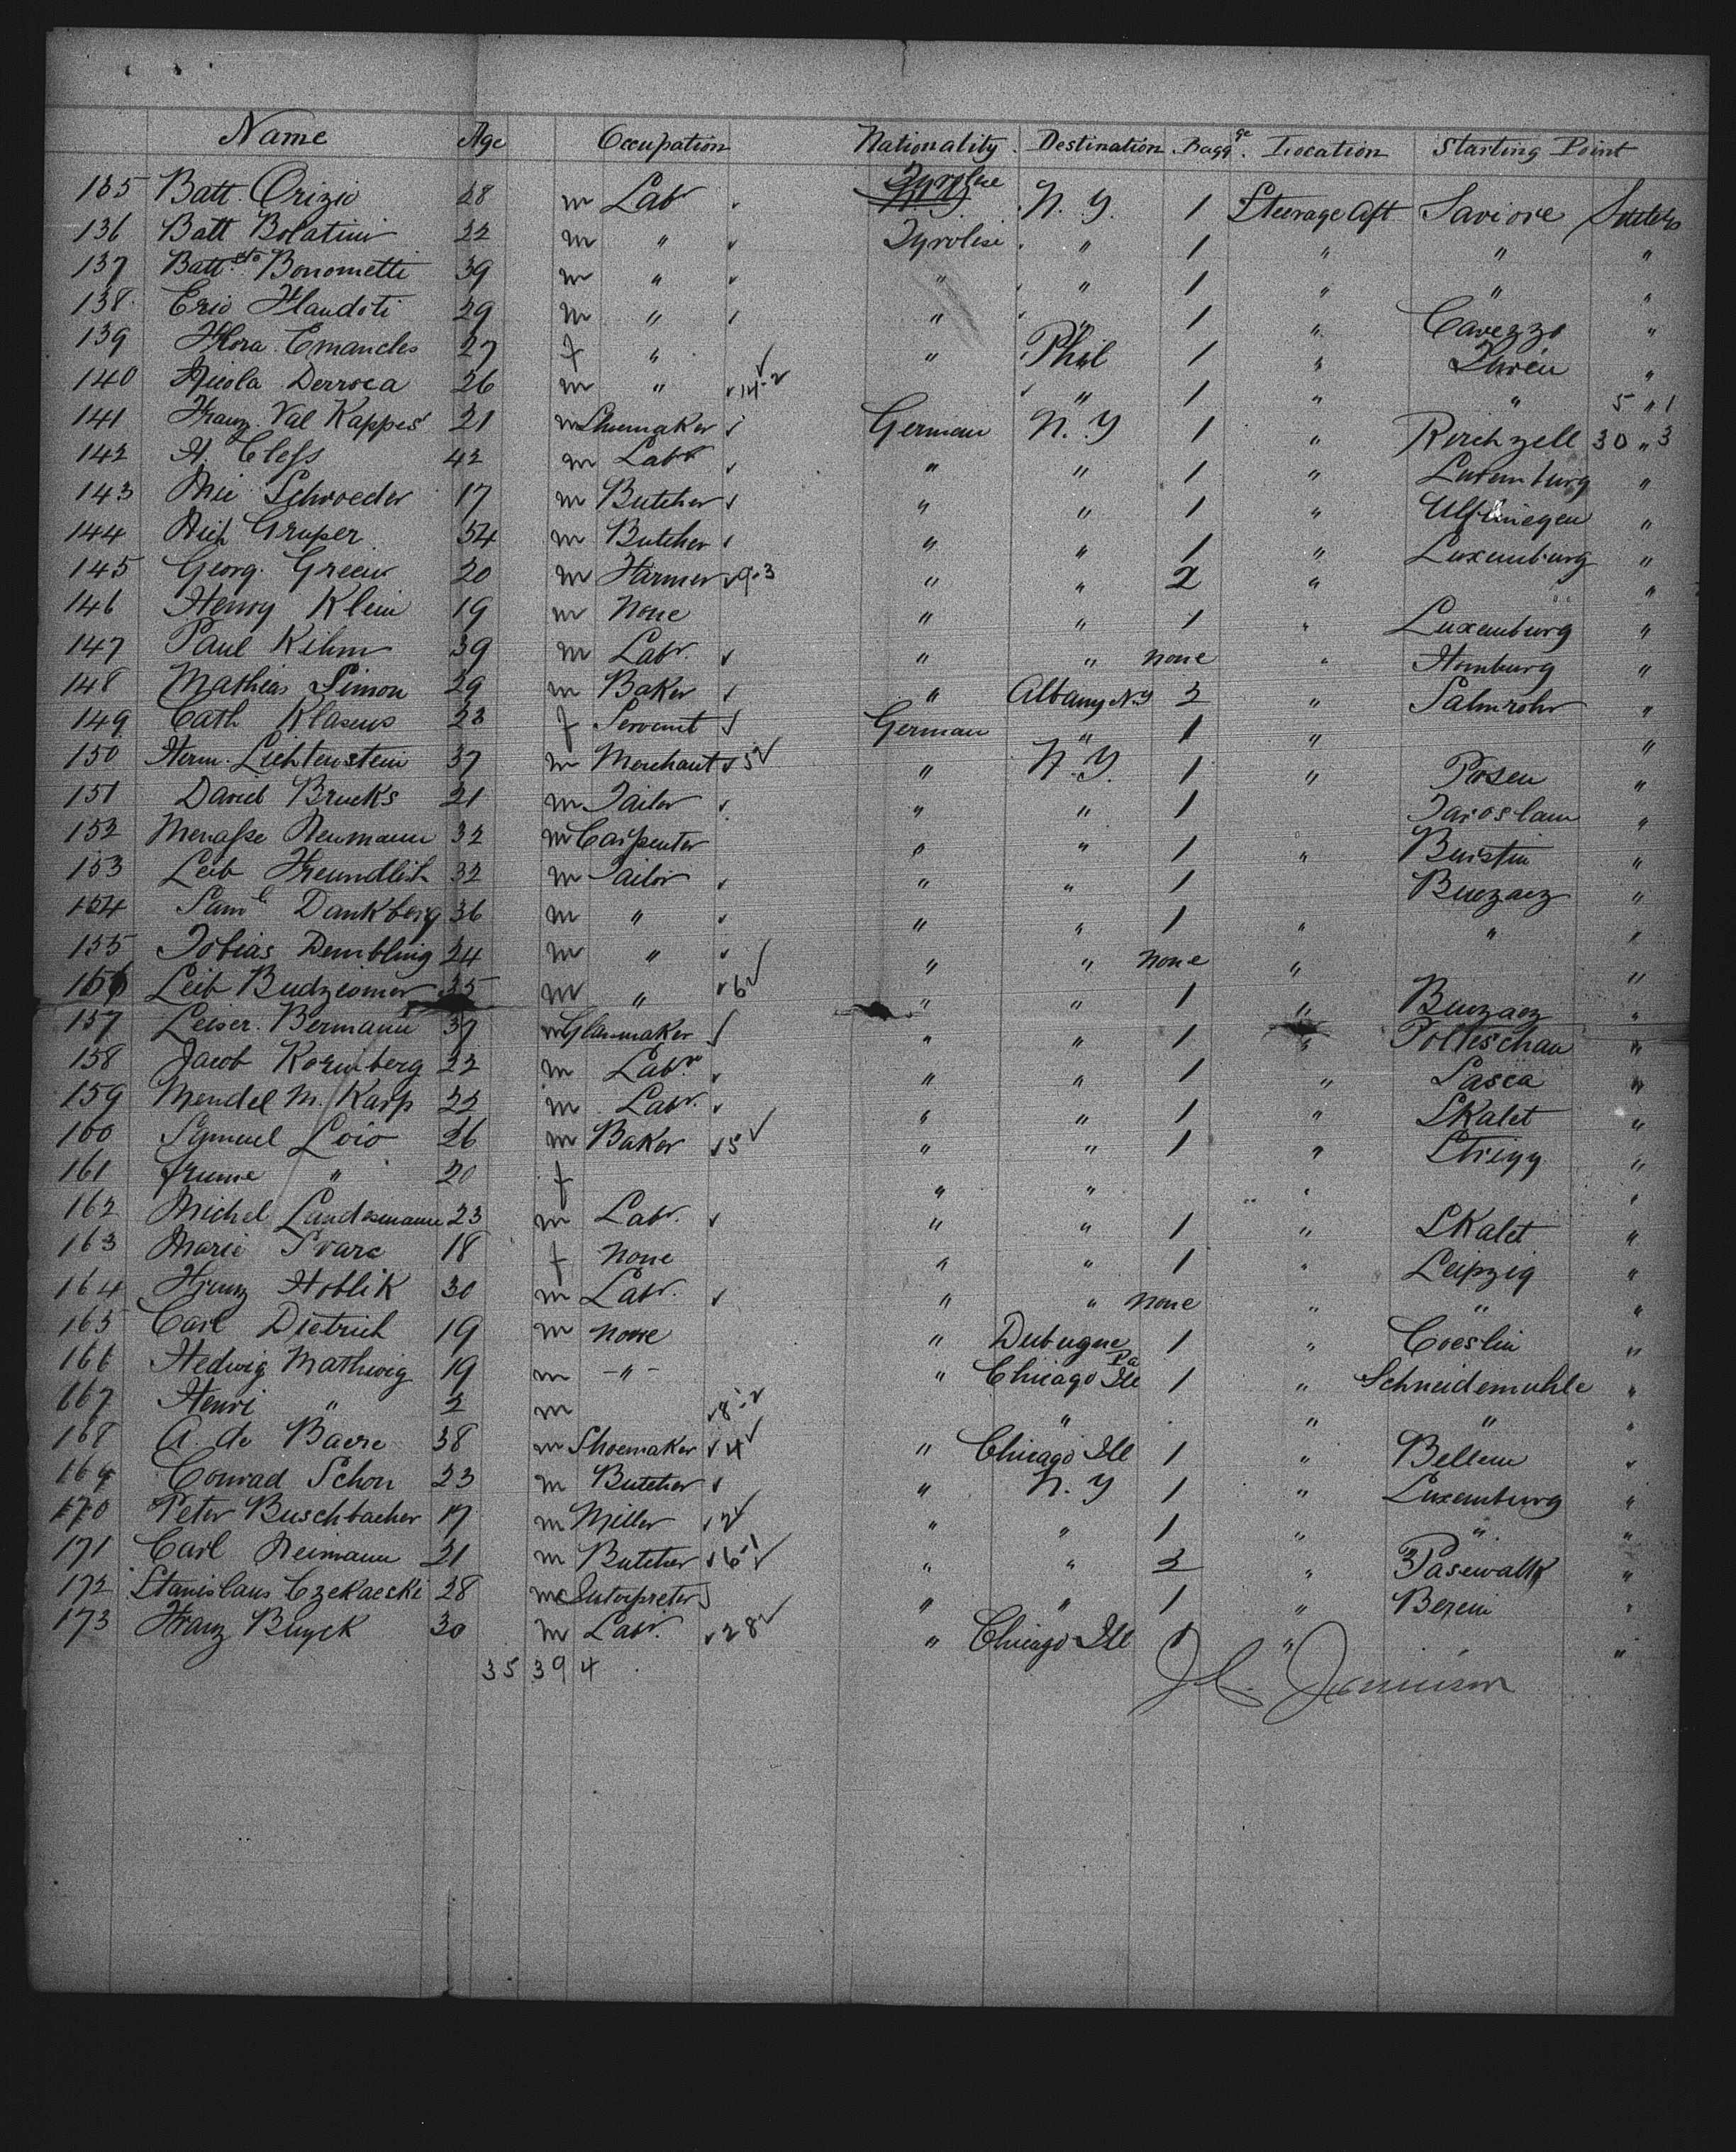 Name Age Occupation Nationality Destination Bagg.ge Location Starting Point
135 Batt. Orizio 28 m Lab Tyrolese N.Y. 1 Steerage Aft Saviore
136 Batt Bolatini 22 m " Tyrolese " 1 " " "
137 Battsto Bonometti 39 m " " " 1 " " "
138 29 m " " " 1 " Cavezzo "
139 Flora 27 f " " Phil 1 " "
140 Nicola Derroca 26 m " 14-2 " 1 " " 5 " 1
141 Franz Val Kappes 21 m Shoemaker German N.Y 1 " Kirchzell 30 " 3
142 A. Cless 42 m Labr " " 1 " Luxemburg "
143 Nic Schroeder 17 m Butcher " " 1 " "
144 Nich Gruper 54 m Butcher " " 1 " Luxemburg "
145 Georg. Green 20 m Farmer 9-3 " " 2 " "
146 Henry Klein 19 m None " " 1 " Luxemburg "
147 Paul Kihm 39 m Labr. " " none " Homburg "
148 Mathias Simon 29 m Baker " Albany N.Y 2 " Salmrohr "
149 Cath Klaseus 23 f Servant German " 1 " "
150 Herm. Lichtenstein 37 m Merchant 5 " N.Y. 1 " Posen "
151 David Brucks 21 m Tailor " " 1 Jaroslaw "
152 Menasse Neumann 32 m Carpenter " " 1 " "
153 Leib Freundlich 32 m Tailor " " 1 Buczacz "
154 Saml Dankberg 36 m " " " 1 " " "
155 Tobias Dembling 24 m " " " none " "
156 Leib Budziomer 35 m " 6 " " 1 " Buczacz "
157 Leiser. Bermann 37 m Glassmaker " " 1 " Polleschau "
158 Jacob Kornberg 22 m Labr. " " 1 " "
159 Mendel M. Karp 22 m Labr. " " 1 " Skalet "
160 Samuel Loio 26 m Baker 5 " " 1 " "
161 " 20 f " " " "
162 Michel Landesmann 23 m Labr. " " 1 " Skalet "
163 Marie Svarc 18 f none " " 1 " Leipzig "
164 Franz Hoblik 30 m Labr. " " none " " "
165 Carl Dietrich 19 m none " Dubuque 1 " Coeslin "
166 Hedwig Mathwig 19 m - " - " Chicago Ill 1 " Schneidemuhle "
167 Henri " 2 m 8-2 " " " "
168 A. de Baere 38 m Shoemaker 4 " Chicago Ill 1 " Bellem "
169 Conrad Schon 23 m Butcher " N.Y 1 " Luxemburg "
170 Peter Buschbacher 17 m Miller 2 " " 1 " " "
171 Carl Neimann 21 m Butcher 6-1 " " 2 " Pasewalk "
172 Stanislaus Czekaecki 28 m Interpreter " " 1 " "
173 Franz Buyck 30 m Labr. 28 " Chicago Ill 1 " "
35 39 4